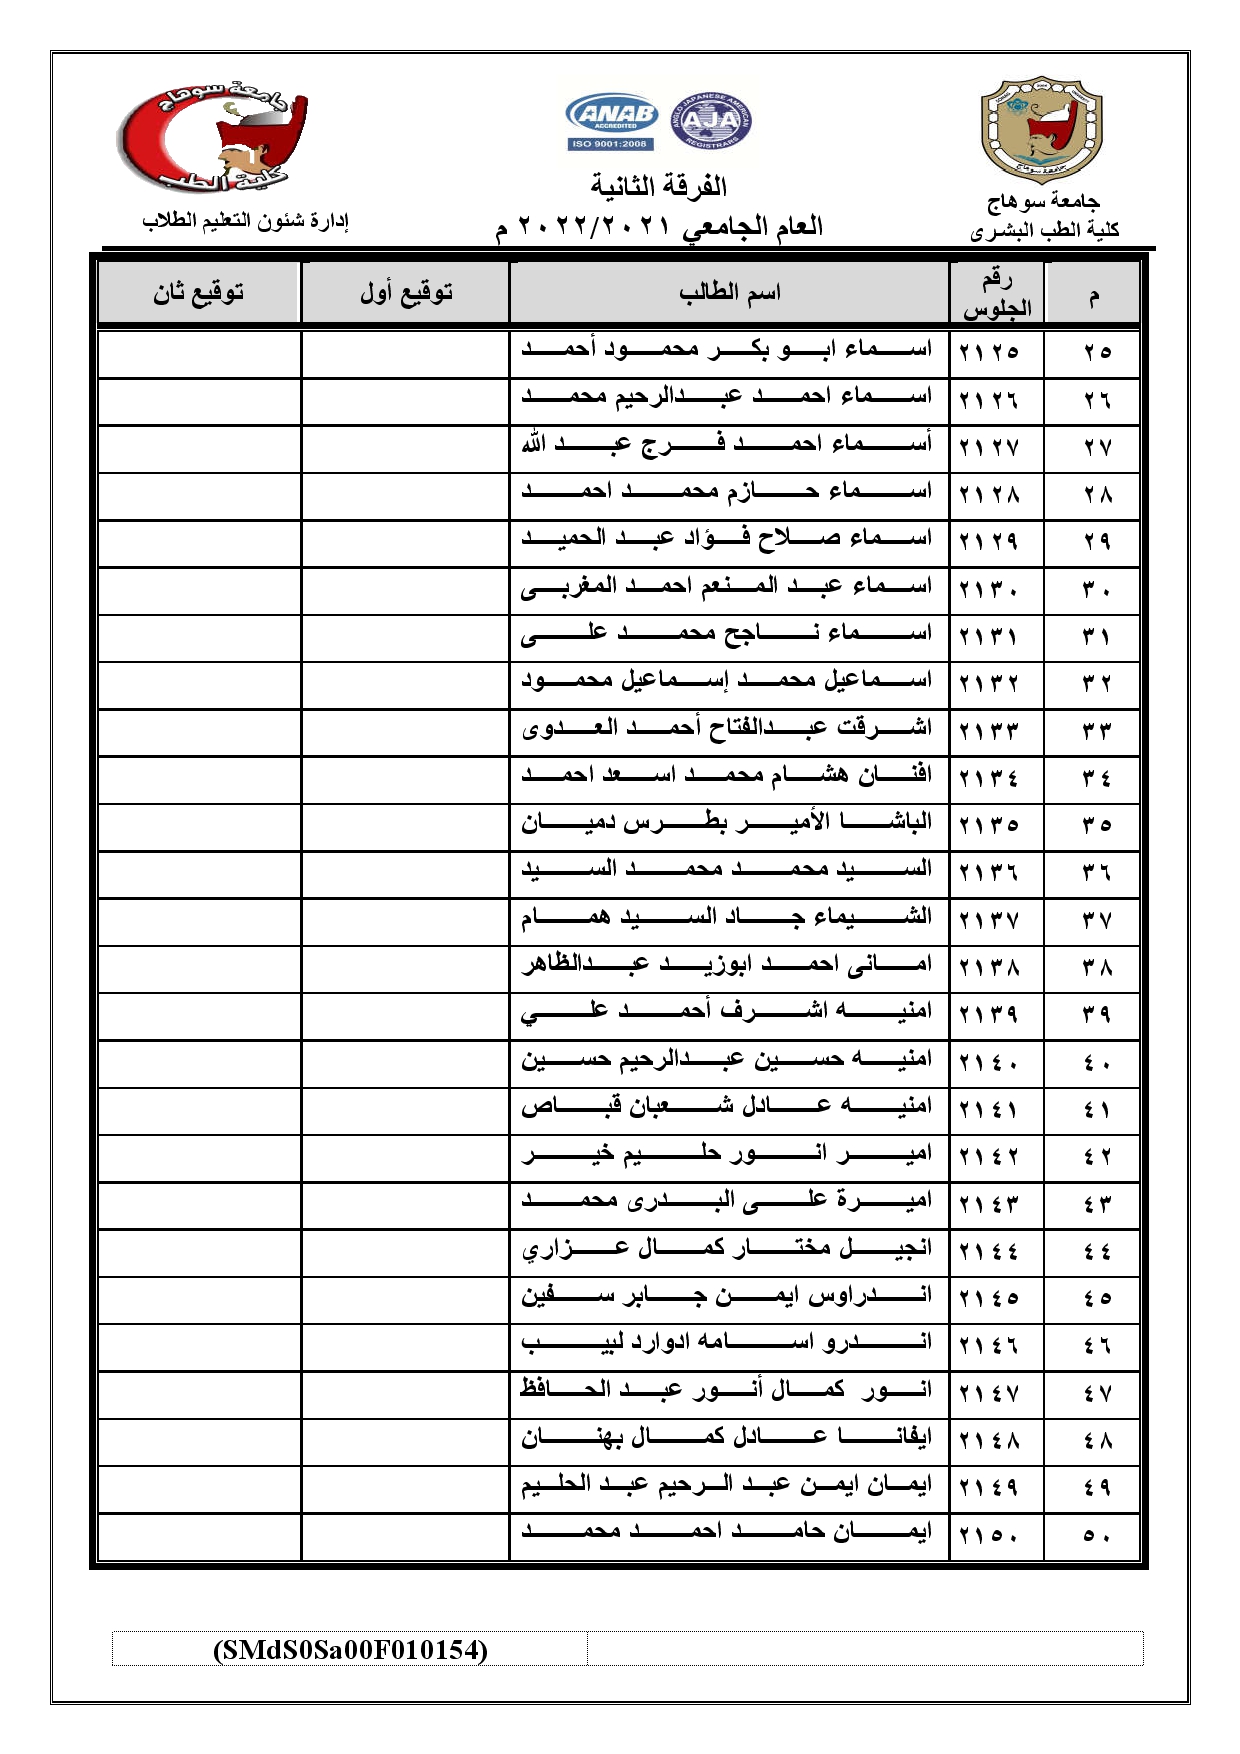 جامعة سوهاج
كلية الطب
ANAB
ACCREDITED
ISO 9001:2008
ANGLO JAPANESE AMERICAN
AJA
REGISTRARS
جامعة سوهاج
جامعة سوهاج
كلية الطب البشرى
الفرقة الثانية
العام الجامعي ٢٠٢٢/٢٠٢١ م
إدارة شئون التعليم الطلاب
م رقم الجلوس اسم الطالب توقيع أول توقيع ثان
٢٥ ٢١٢٥ اسماء ابو بكر محمود أحمد
٢٦ ٢١٢٦ اسماء احمد عبدالرحيم محمد
٢٧ ٢١٢٧ أسماء احمد فرج عبد الله
٢٨ ٢١٢٨ اسماء حازم محمد احمد
٢٩ ٢١٢٩ اسماء صلاح فؤاد عبد الحميد
٣٠ ٢١٣٠ اسماء عبد المنعم احمد المغربى
٣١ ٢١٣١ اسماء ناجح محمد على
٣٢ ٢١٣٢ اسماعيل محمد إسماعيل محمود
٣٣ ٢١٣٣ اشرقت عبدالفتاح أحمد العدوى
٣٤ ٢١٣٤ افنان هشام محمد اسعد احمد
٣٥ ٢١٣٥ الباشا الأمير بطرس دميان
٣٦ ٢١٣٦ السيد محمد محمد السيد
٣٧ ٢١٣٧ الشيماء جاد السيد همام
٣٨ ٢١٣٨ امانى احمد ابوزيد عبدالظاهر
٣٩ ٢١٣٩ امنيه اشرف أحمد علي
٤٠ ٢١٤٠ امنيه حسين عبدالرحيم حسين
٤١ ٢١٤١ امنيه عادل شعبان قباص
٤٢ ٢١٤٢ امير انور حليم خير
٤٣ ٢١٤٣ اميرة على البدرى محمد
٤٤ ٢١٤٤ انجيل مختار كمال عزاري
٤٥ ٢١٤٥ اندراوس ايمن جابر سفين
٤٦ ٢١٤٦ اندرو اسامه ادوارد لبيب
٤٧ ٢١٤٧ انور كمال أنور عبد الحافظ
٤٨ ٢١٤٨ ايفانا عادل كمال بهنان
٤٩ ٢١٤٩ ايمان ايمن عبد الرحيم عبد الحليم
٥٠ ٢١٥٠ ايمان حامد احمد محمد
(SMdS0Sa00F010154)